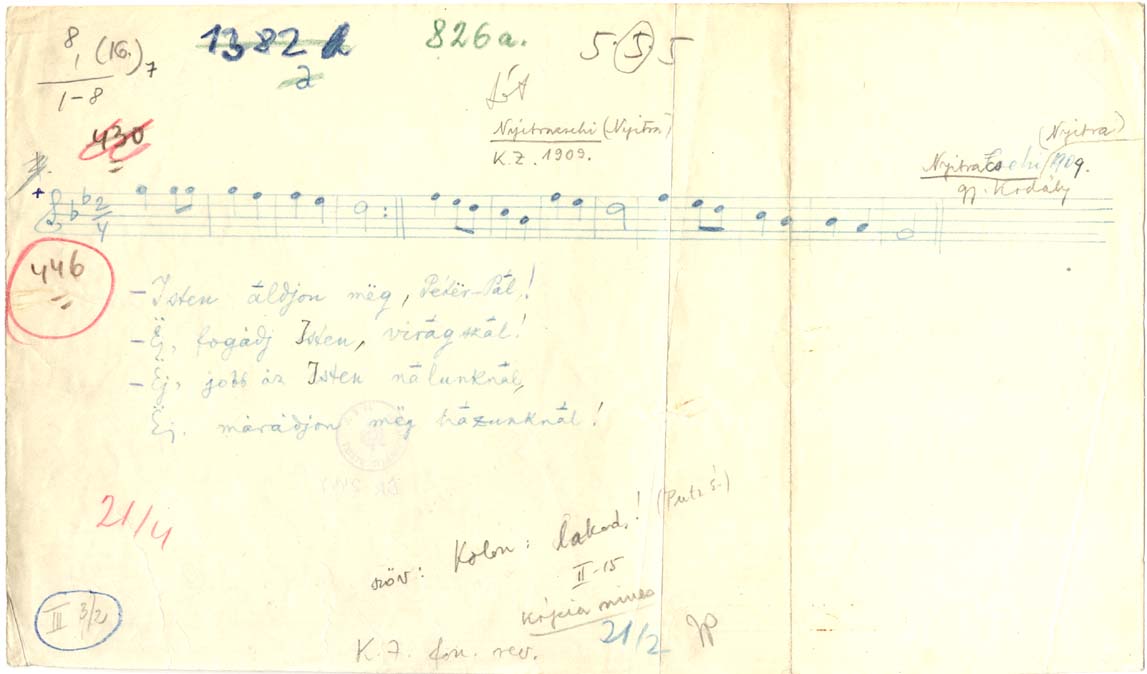 8, (16.) 7
1-8
1382
a
826a.
5 5 5
Nyitracsehi (Nyitra)
K. Z. 1909.
430
(Nyitra)
Nyitra Csehi 1909.
gy. Kodály
2/4
446
– Isten áldjon mëg, Pétër-Pál!
– Ëj, fogádj Isten, virágszál!
– Ëj, jobb áz Isten nálunknál,
Ëj, márádjon mëg házunknál!
21/4
szöv: Kolon: lakod.! (Putz É.)
II-15
Kópia nincs
21/2
III 3/2
K. Z. fon. rev.